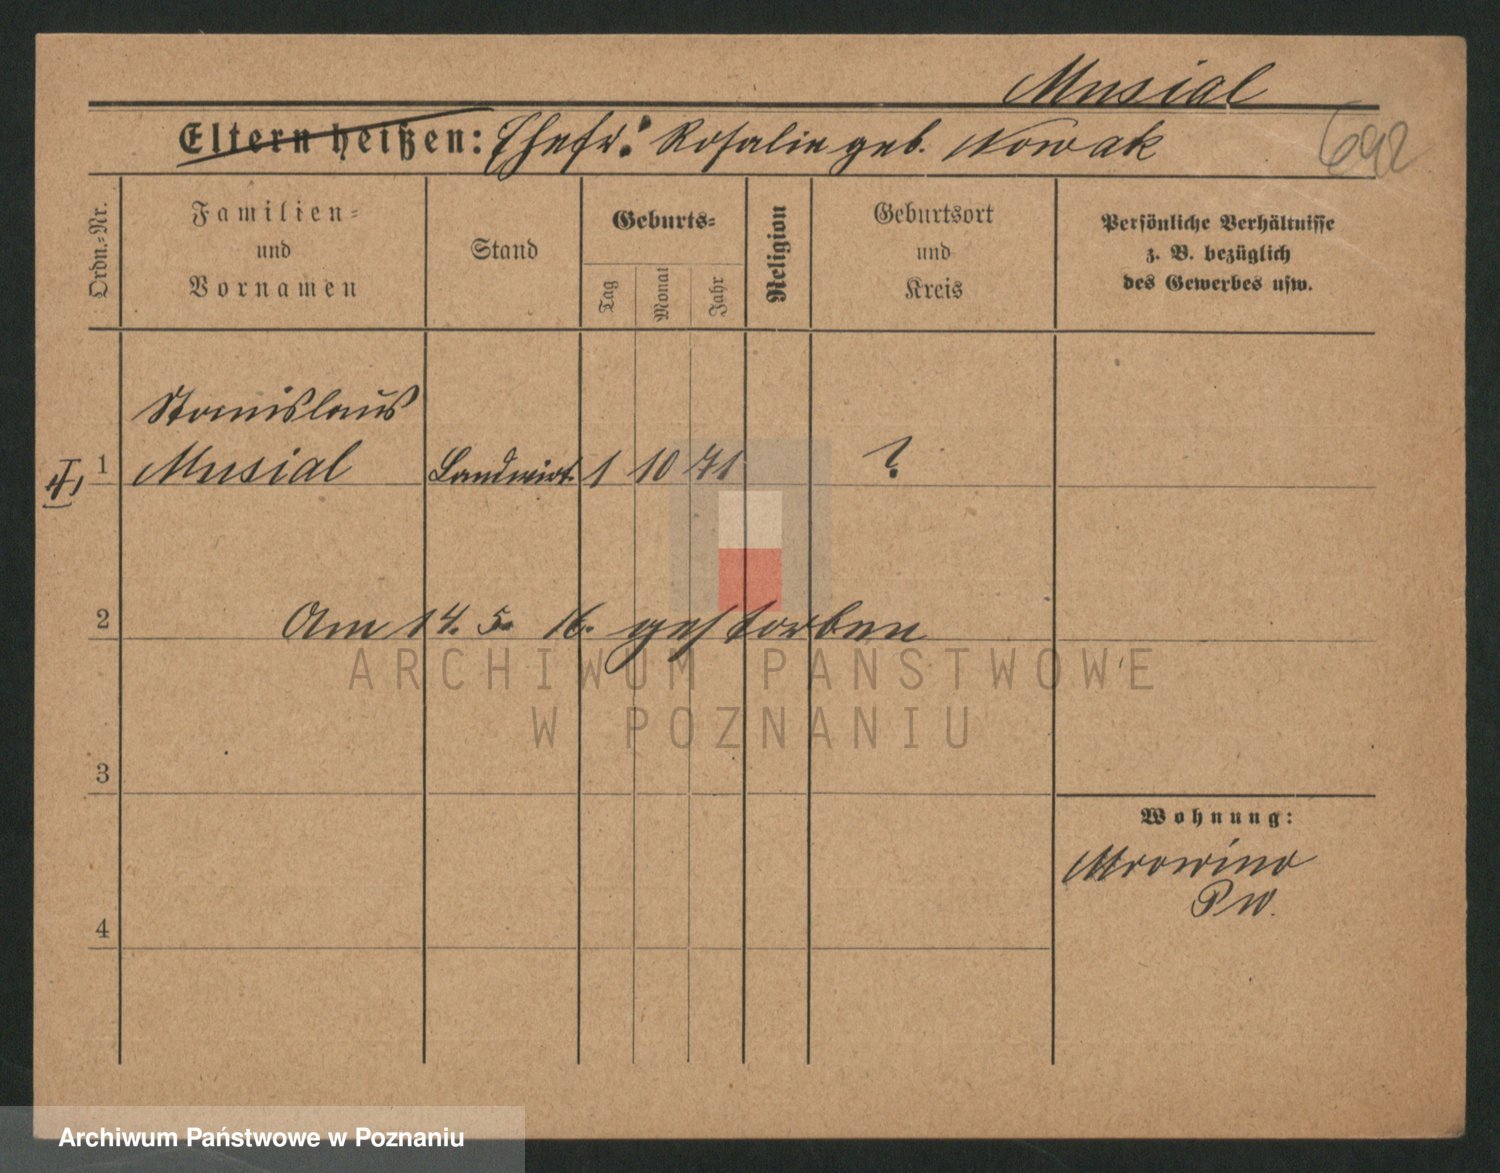 Musial
Eltern heißen: Ehefr: Rosalie geb. Nowak
692
Ordn.=Nr.
Familien=
und
Vornamen
Stand
Geburts=
Tag
Monat
Jahr
Religion
Geburtsort
und
Kreis
Persönliche Verhältnisse
z. B. bezüglich
des Gewerbes usw.
Stanislaus
1 Musial Landwirt 1 10 71 ?
2 Am 14. 5. 16. gestorben
ARCHIWUM PAŃSTWOWE
W POZNANIU
3
Wohnung:
Mrowino
Pw.
4
Archiwum Państwowe w Poznaniu